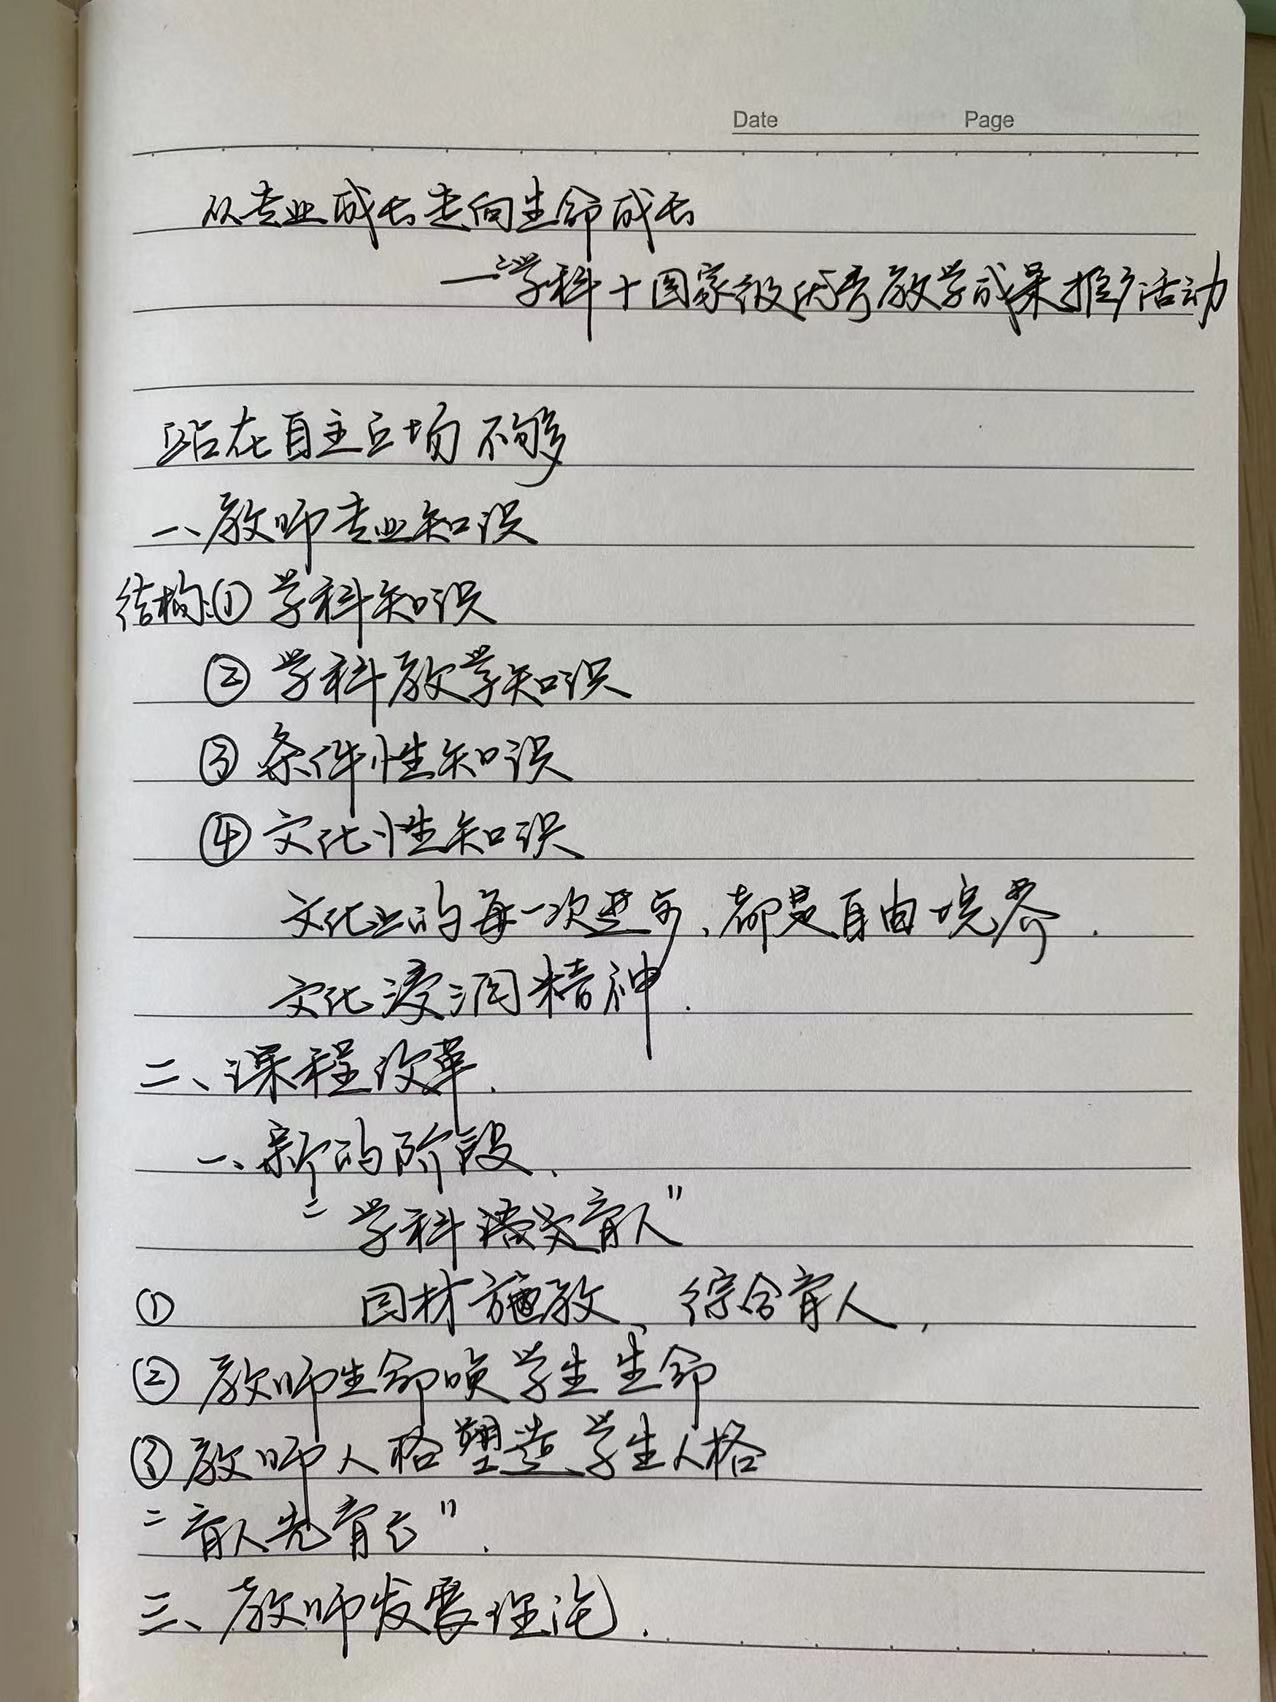 Date Page
从专业成长走向生命成长
—“学科十国家级优秀教学成果推广活动
站在自主立场不够
一、教师专业知识
结构:① 学科知识
② 学科教学知识
③ 条件性知识
④ 文化性知识
文化上的每一次进步、都是自由境界.
文化浸润精神.
二、课程改革.
一、新的阶段、
“学科语文育人”
① 因材施教、综合育人,
② 教师生命唤学生生命
③ 教师人格塑造学生人格
“育人先育己”.
三、教师发展理论.